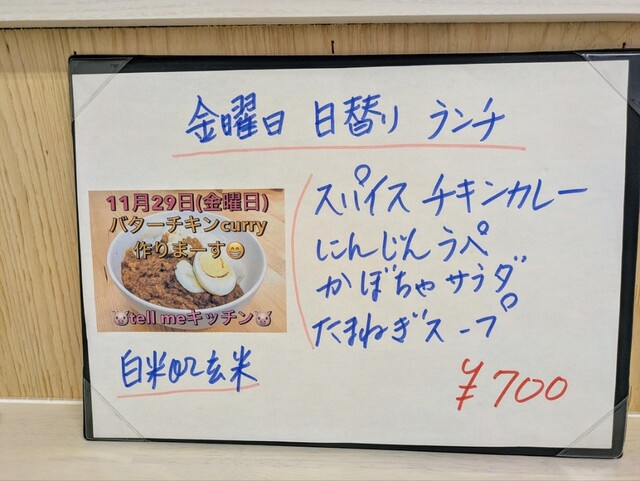 金曜日 日替り ランチ
11月29日(金曜日)
バターチキンcurry
作りまーす😁
🐷tell meキッチン🐷
白米or玄米
スパイス チキンカレー
にんじんラペ
かぼちゃサラダ
たまねぎスープ
¥700